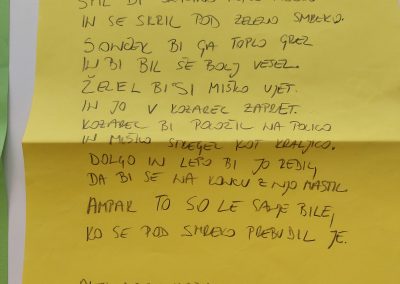 IN SE SKRIL POD ZELENO SMREKO.
SONČEK BI GA TOPLO GREL
IN BI BIL ŠE BOLJ VESEL.
ŽELEL BI SI MIŠKO UJET.
IN JO V KOZAREC ZAPRET.
KOZAREC BI POLOŽIL NA POLICO
IN MIŠKO STREGEL KOT KRALJICO.
DOLGO IN LEPO BI JO REDIL,
DA BI SE NA KONCU Z NJO MASTIL.
AMPAK TO SO LE SANJE BILE,
KO SE POD SMREKO PREBUDIL JE.